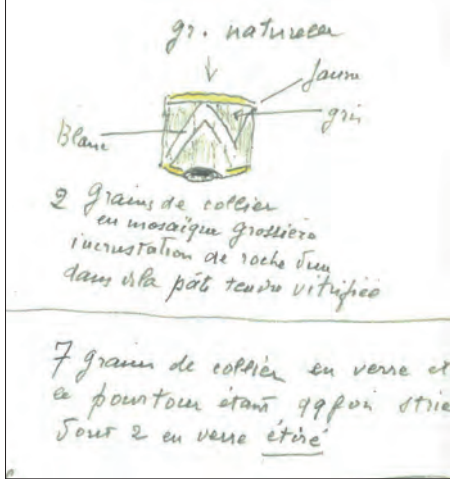 gr. naturelle
Jaune
gris
Blanc
2 grains de collier
en mosaïque grossière
incrustation de roche
dans la pâte tendre vitrifiée
7 grains de collier en verre et
le pourtour étant qqfois strié
dont 2 en verre étiré